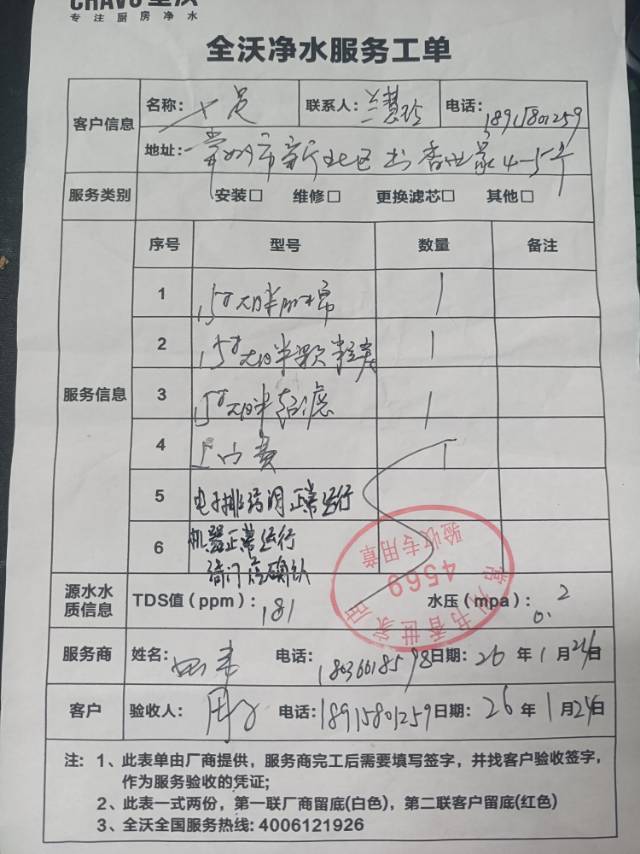 CHAVO全沃
专注厨房净水
全沃净水服务工单
客户信息
名称：
联系人：兰慧玲
电话：18915801259
地址：常州市新北区书香世家4-
服务类别
安装□ 维修□ 更换滤芯□ 其他□
服务信息
序号 型号 数量 备注
1 1
2 1
3 超滤 1
4 上门费 1
5 电子排污阀正常运行
6 机器正常运行
请门店确认
常州书香世家店
4569
验收专用章
源水水质信息
TDS值（ppm）：181
水压（mpa）：0.2
服务商
姓名：
电话：18036618598
日期：26年1月24日
客户
验收人：
电话：18915801259
日期：26年1月24日
注：1、此表单由厂商提供，服务商完工后需要填写签字，并找客户验收签字，
作为服务验收的凭证；
2、此表一式两份，第一联厂商留底(白色)，第二联客户留底(红色)
3、全沃全国服务热线：4006121926